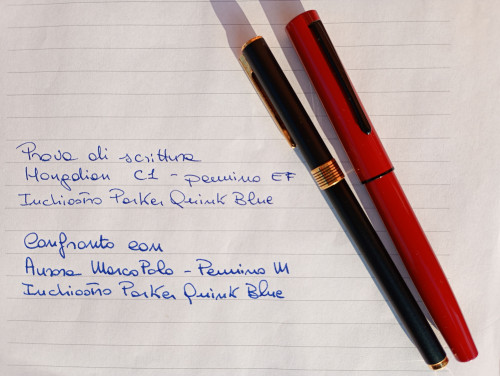 Prova di scrittura
Hongdian C1 - pennino EF
Inchiostro Parker Quink Blue
Confronto con
Aurora MarcoPolo - Pennino M
Inchiostro Parker Quink Blue